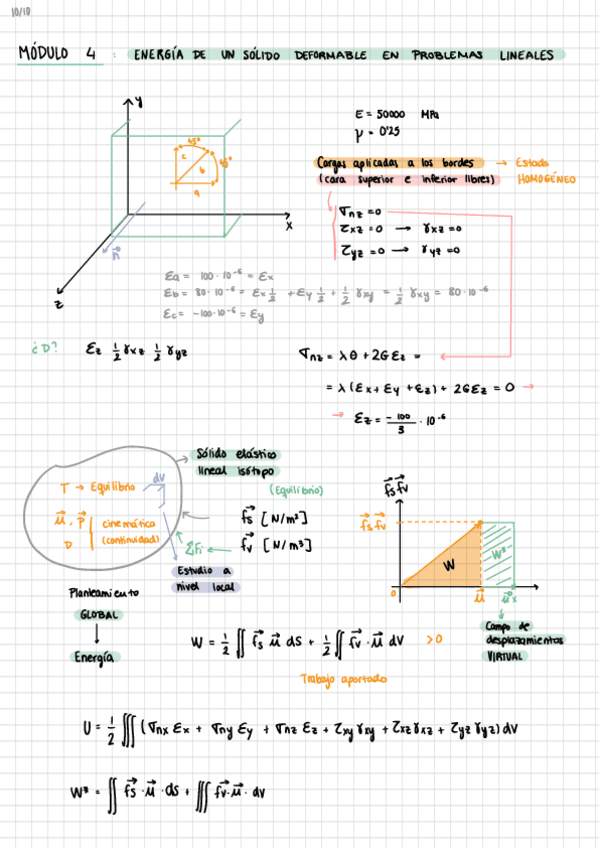 10/10
MÓDULO 4 : ENERGÍA DE UN SÓLIDO DEFORMABLE EN PROBLEMAS LINEALES
y
x
z
n
45°
45°
c
b
a
E = 50000 MPa
γ = 0'25
Cargas aplicadas a los bordes → Estado
(cara superior e inferior libres) HOMOGÉNEO
σnz = 0
τxz = 0 → γxz = 0
τyz = 0 → γyz = 0
εa = 100·10⁻⁶ = εx
εb = 80·10⁻⁶ = εx ½ + εy ½ + ½ γxy = ½ γxy = 80·10⁻⁶
εc = -100·10⁻⁶ = εy
¿D? εz ½ γxz ½ γyz
σnz = λθ + 2Gεz =
= λ(εx + εy + εz) + 2Gεz = 0 →
→ εz = -100/3 · 10⁻⁶
Sólido elástico
lineal isótopo
(Equilibrio)
T → Equilibrio
dV
u⃗, P⃗
D
cinemática
(continuidad)
f⃗s [N/m²]
f⃗v [N/m³]
ΣFi ←
Estudio a
nivel local
f⃗s f⃗v
f⃗s f⃗v
W
W*
0
u⃗
u⃗*
Campo de
desplazamientos
VIRTUAL
Planteamiento
GLOBAL
Energía
W = ½ ∬ f⃗s u⃗ dS + ½ ∬ f⃗v · u⃗ dV > 0
Trabajo aportado
U = ½ ∭ (σnx εx + σny εy + σnz εz + τxy γxy + τxz γxz + τyz γyz) dV
W* = ∬ f⃗s · u⃗ · dS + ∭ f⃗v · u⃗ · dV